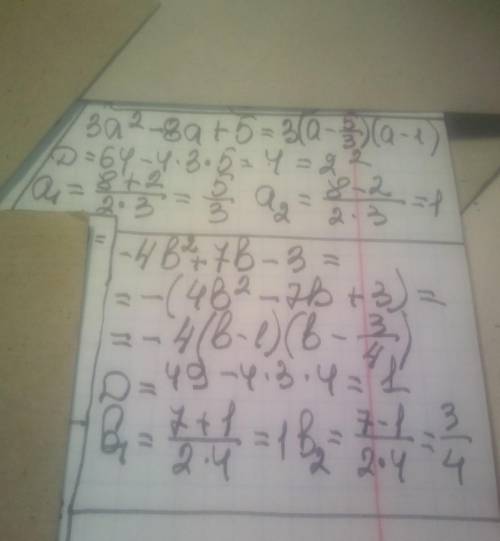 3a² - 8a + 5 = 3(a - 5/3)(a - 1)
D = 64 - 4·3·5 = 4 = 2²
a₁ = (8+2)/(2·3) = 5/3 a₂ = (8-2)/(2·3) = 1
= -4b² + 7b - 3 =
= -(4b² - 7b + 3) =
= -4(b - 1)(b - 3/4)
D = 49 - 4·3·4 = 1
b₁ = (7+1)/(2·4) = 1 b₂ = (7-1)/(2·4) = 3/4